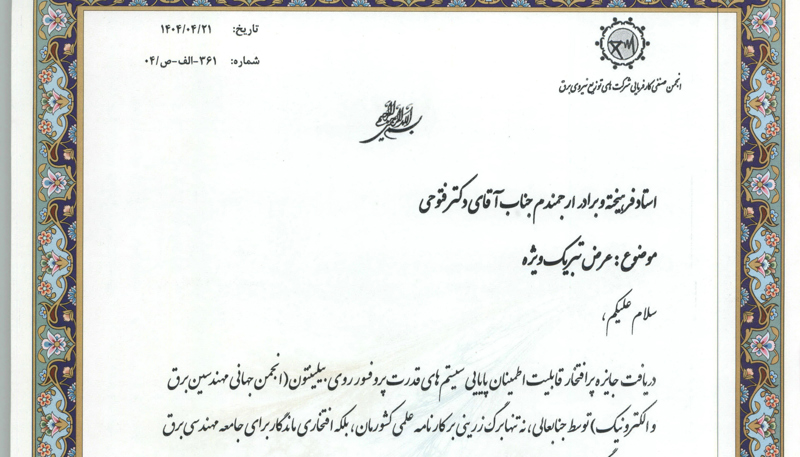 تاریخ: ۱۴۰۴/۰۴/۲۱
شماره: ۳۶۱-الف-ص/۰۴
انجمن صنفی کارفرمایی شرکت های توزیع نیروی برق
بسم الله الرحمن الرحیم
استاد فرهیخته و برادر ارجمندم جناب آقای دکتر فتوحی
موضوع : عرض تبریک ویژه
سلام علیکم ،
دریافت جایزه پرافتخار قابلیت اطمینان پایایی سیستم های قدرت پروفسور روی بیلینتون (انجمن جهانی مهندسین برق
و الکترونیک) توسط جنابعالی، نه تنها برگ زرینی بر کارنامه علمی کشورمان، بلکه افتخاری ماندگار برای جامعه مهندسی برق